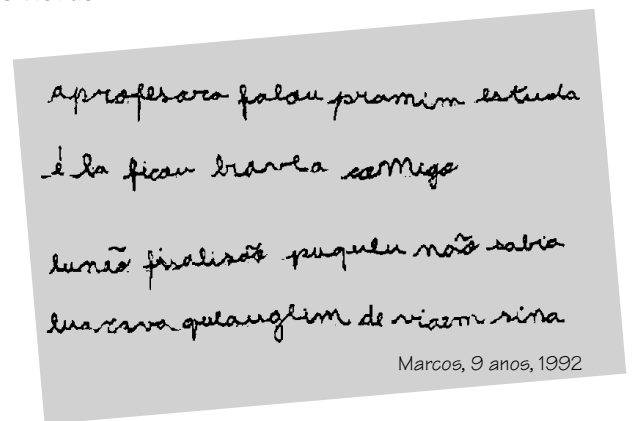 aprofesara falau pramim estuda
é la ficau bravea comigo
eunão fisalisão puqueeu não sabia
de viaem sina
Marcos, 9 anos, 1992